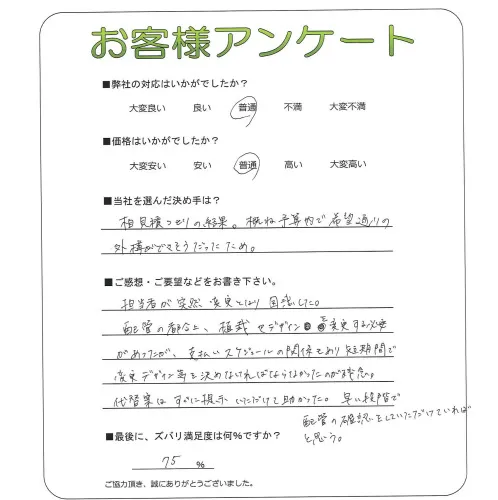 お客様アンケート
■弊社の対応はいかがでしたか？
大変良い 良い 普通 不満 大変不満
■価格はいかがでしたか？
大変安い 安い 普通 高い 大変高い
■当社を選んだ決め手は？
相見積もりの結果。概ね予算内で希望通りの
外構ができそうだったため。
■ご感想・ご要望などをお書き下さい。
担当者が突然変更となり困惑した。
配管の都合上、植栽やデザインを変更する必要
があったが、支払いスケジュールの関係もあり短期間で
変更デザイン等を決めなければならなかったのが残念。
代替案はすぐに提示いただけて助かった。早い段階で
配管の確認をしていただけていれば
と思う。
■最後に、ズバリ満足度は何％ですか？
75 ％
ご協力頂き、誠にありがとうございました。